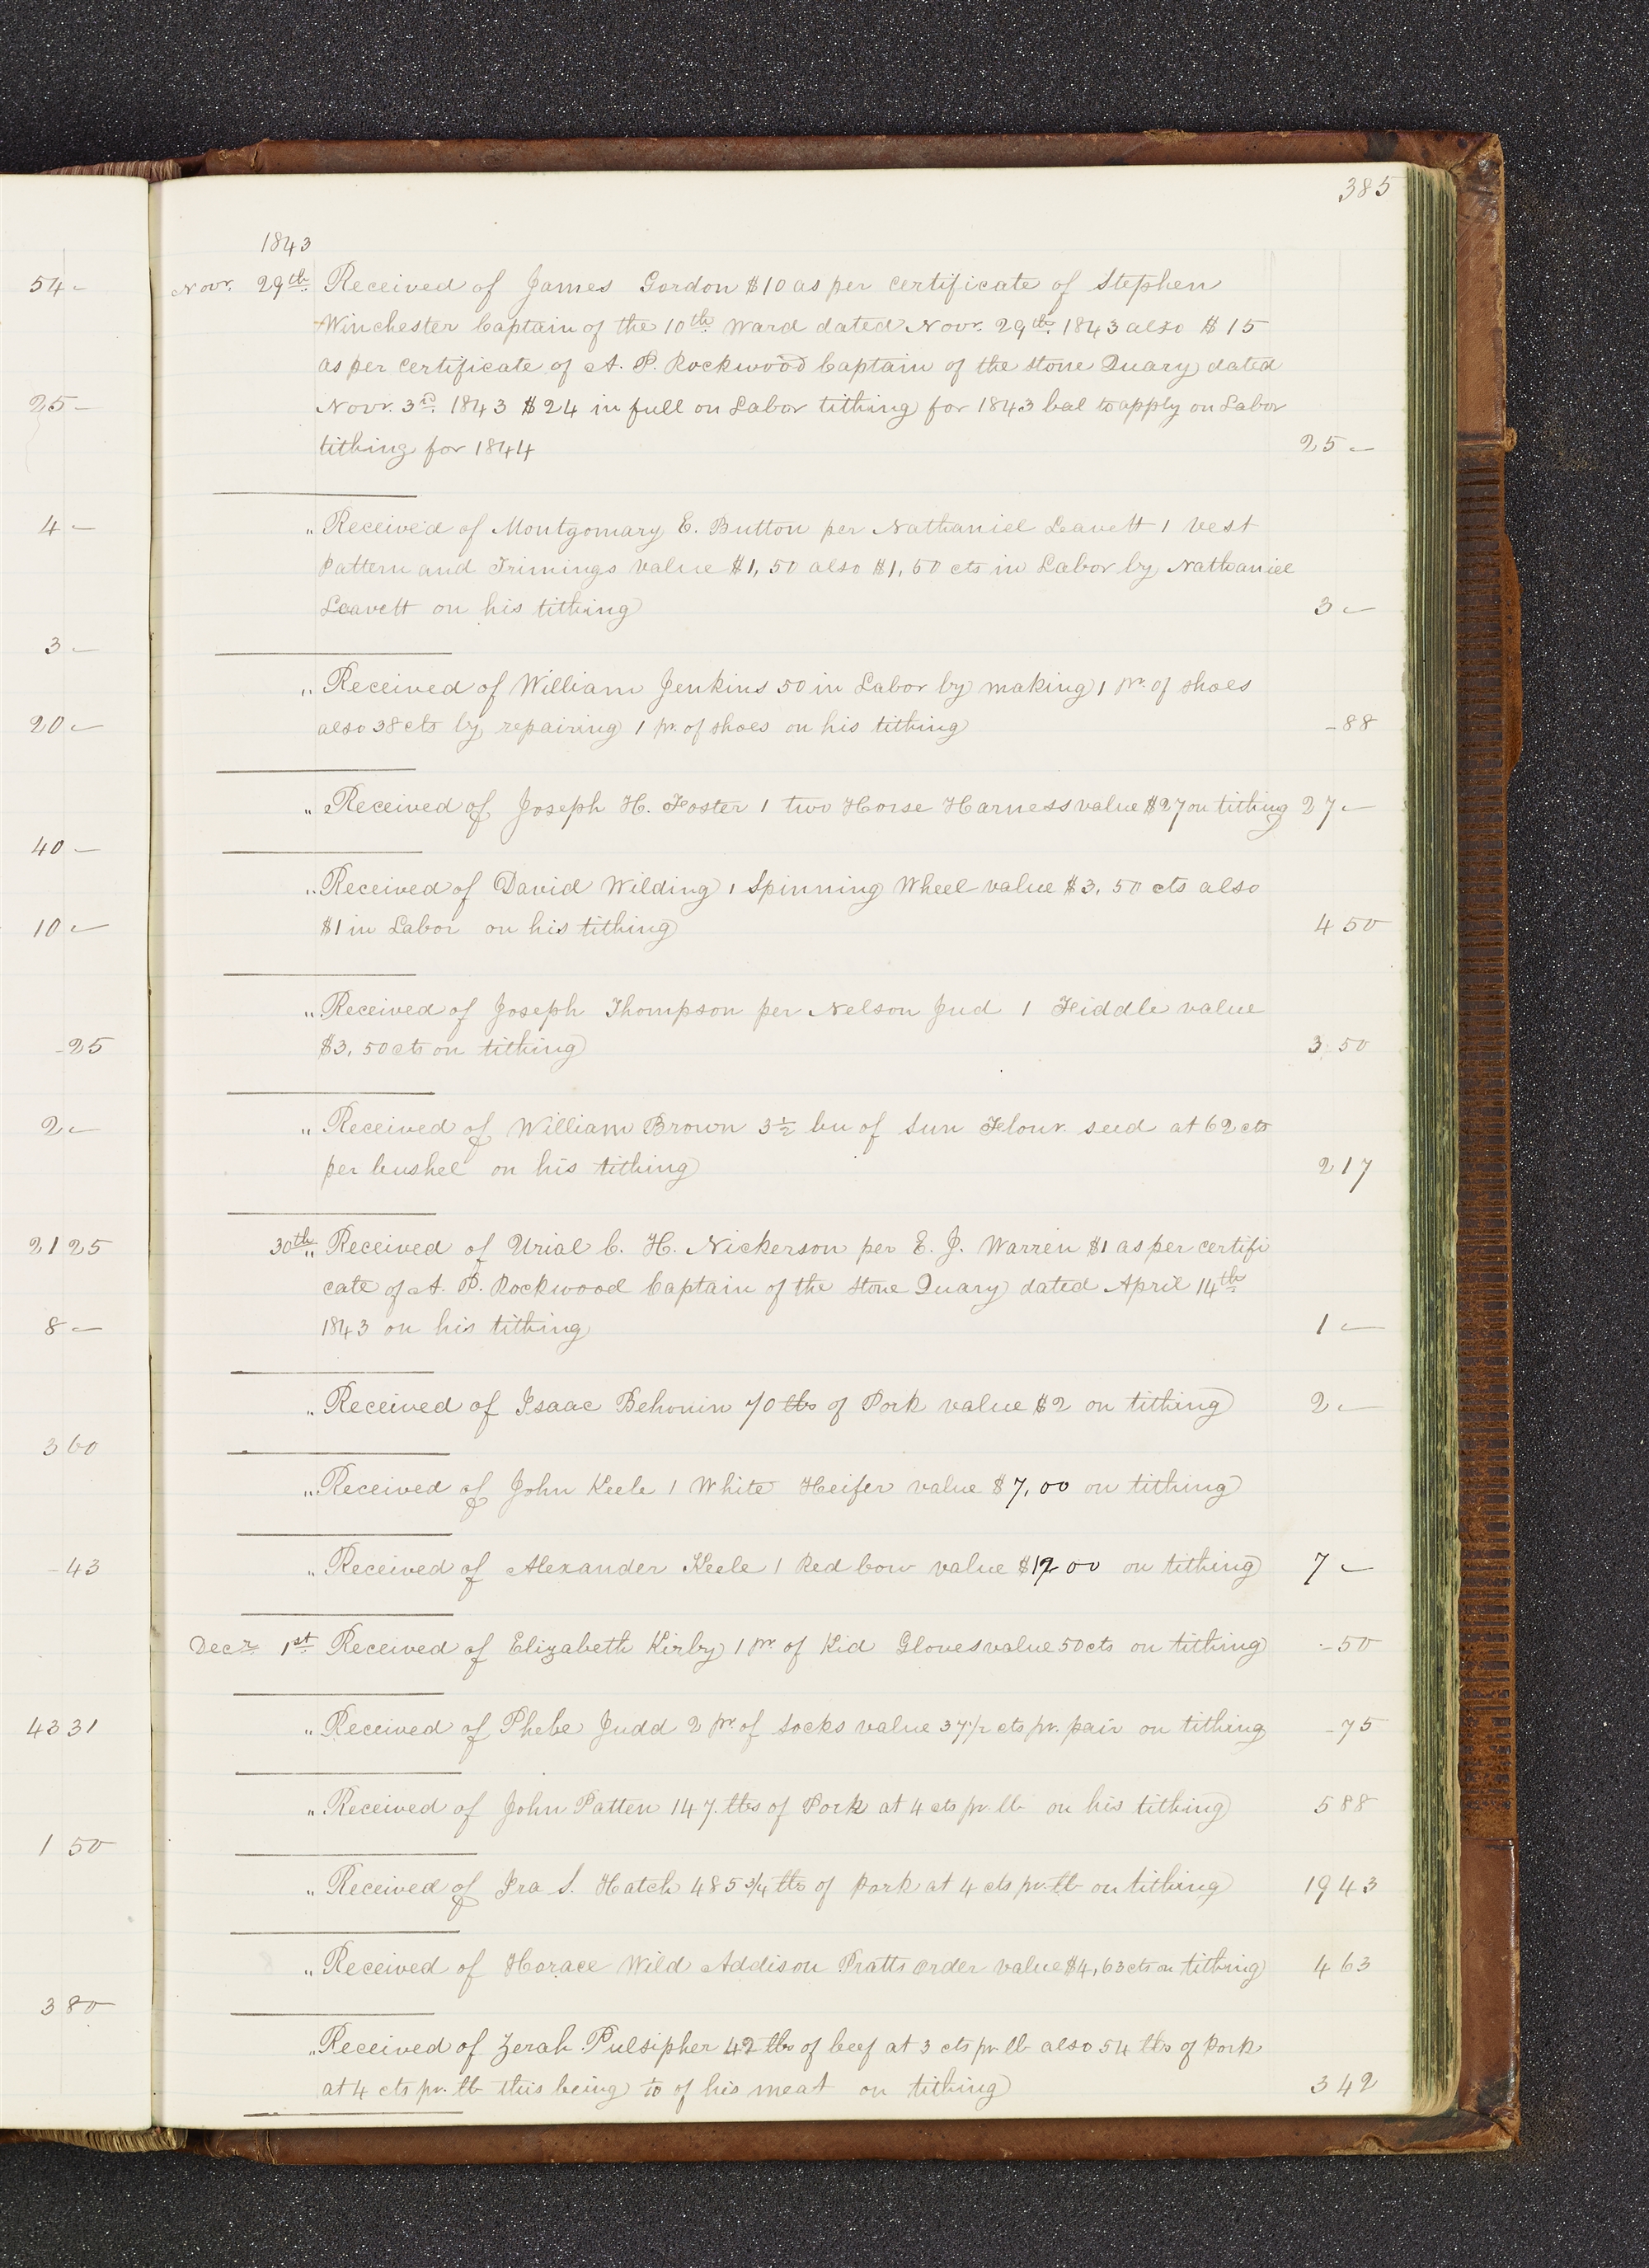 385
1843
54 -
Novr. 29th Received of James Gordon $10 as per certificate of Stephen
Winchester Captain of the 10th Ward dated Novr. 29th 1843 also $15
as per certificate of A. P. Rockwood Captain of the stone Quary dated
25 -
Novr. 3d 1843 $24 in full on Labor tithing for 1843 bal to apply on Labor
tithing for 1844 25 -
4 -
" Received of Montgomary E. Button per Nathaniel Leavett 1 vest
Pattern and Trimings value $1,50 also $1,50 cts in Labor by Nathaniel
Leavett on his tithing 3 -
3 -
" Received of William Jenkins 50 in Labor by making 1 pr. of shoes
20 -
also 38 cts by repairing 1 pr. of shoes on his tithing - 88
" Received of Joseph H. Foster 1 two Horse Harness value $27 on tithing 27 -
40 -
" Received of David Wilding 1 Spinning Wheel value $3,50 cts also
10 -
$1 in Labor on his tithing 4 50
" Received of Joseph Thompson per Nelson Jud 1 Fiddle value
- 25
$3,50 cts on tithing 3 50
2 -
" Received of William Brown 3 1/2 bu of Sun Flour. seed at 62 cts
per bushel on his tithing 2 17
21 25
30th " Received of Urial C. H. Nickerson per E. J. Warren $1 as per certifi
cate of A. P. Rockwood Captain of the stone Quary dated April 14th
8 -
1843 on his tithing 1 -
" Received of Isaac Behonin 70 lbs of Pork value $2 on tithing 2 -
3 60
" Received of John Keele 1 White Heifer value $7,00 on tithing
- 43
" Received of Alexander Keele 1 Red Cow value $12 00 on tithing 7 -
Decr 1st Received of Elizabeth Kirby 1 pr of Kid Gloves value 50 cts on tithing - 50
43 31
" Received of Phebe Judd 2 pr. of socks value 37 1/2 cts pr. pair on tithing - 75
" Received of John Patten 147 lbs of Pork at 4 cts pr. lb on his tithing 5 88
1 50
" Received of Ira S. Hatch 485 3/4 lbs of Pork at 4 cts pr. lb on tithing 19 43
" Received of Horace Wild Addison Pratts order value $4,63 cts on tithing 4 63
3 80
" Received of Zerah Pulsipher 42 lbs of beef at 3 cts pr lb also 54 lbs of Pork
at 4 cts pr. lb this being 1/10 of his meat on tithing 3 42